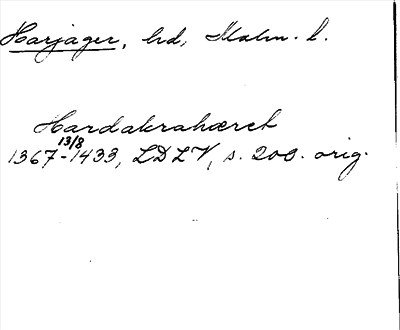 Harjager, hd, Malm. l.
Hardakrahæret
13/8
1367-1433, LDLV, s. 200. orig.